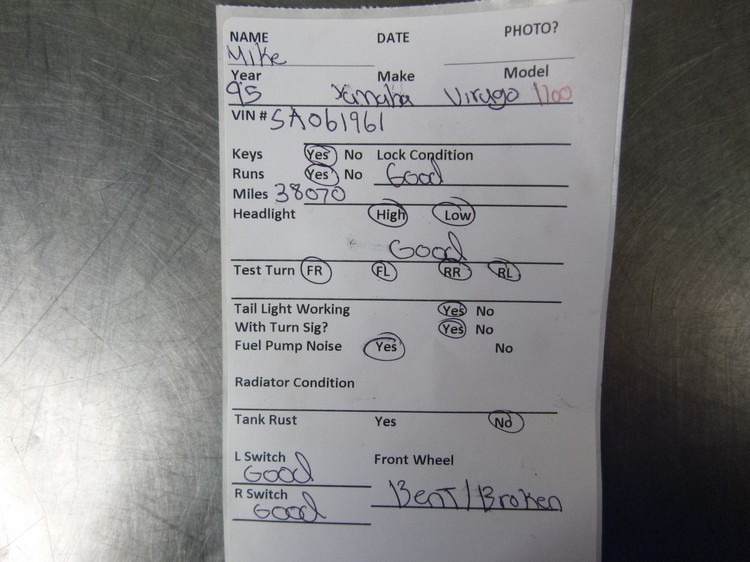 NAME DATE PHOTO?
Mike
Year Make Model
95 Yamaha Virago 1100
VIN # SA061961
Keys Yes No Lock Condition
Runs Yes No Good
Miles 38070
Headlight High Low
Good
Test Turn FR FL RR RL
Tail Light Working Yes No
With Turn Sig? Yes No
Fuel Pump Noise Yes No
Radiator Condition
Tank Rust Yes No
L Switch Front Wheel
Good
R Switch Bent/Broken
Good